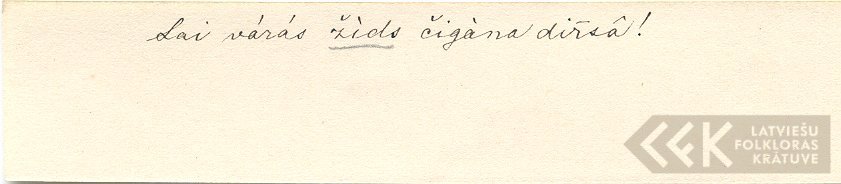 Lai várás žìds čigàna dir̃sâ!
LATVIEŠU
FOLKLORAS
KRĀTUVE